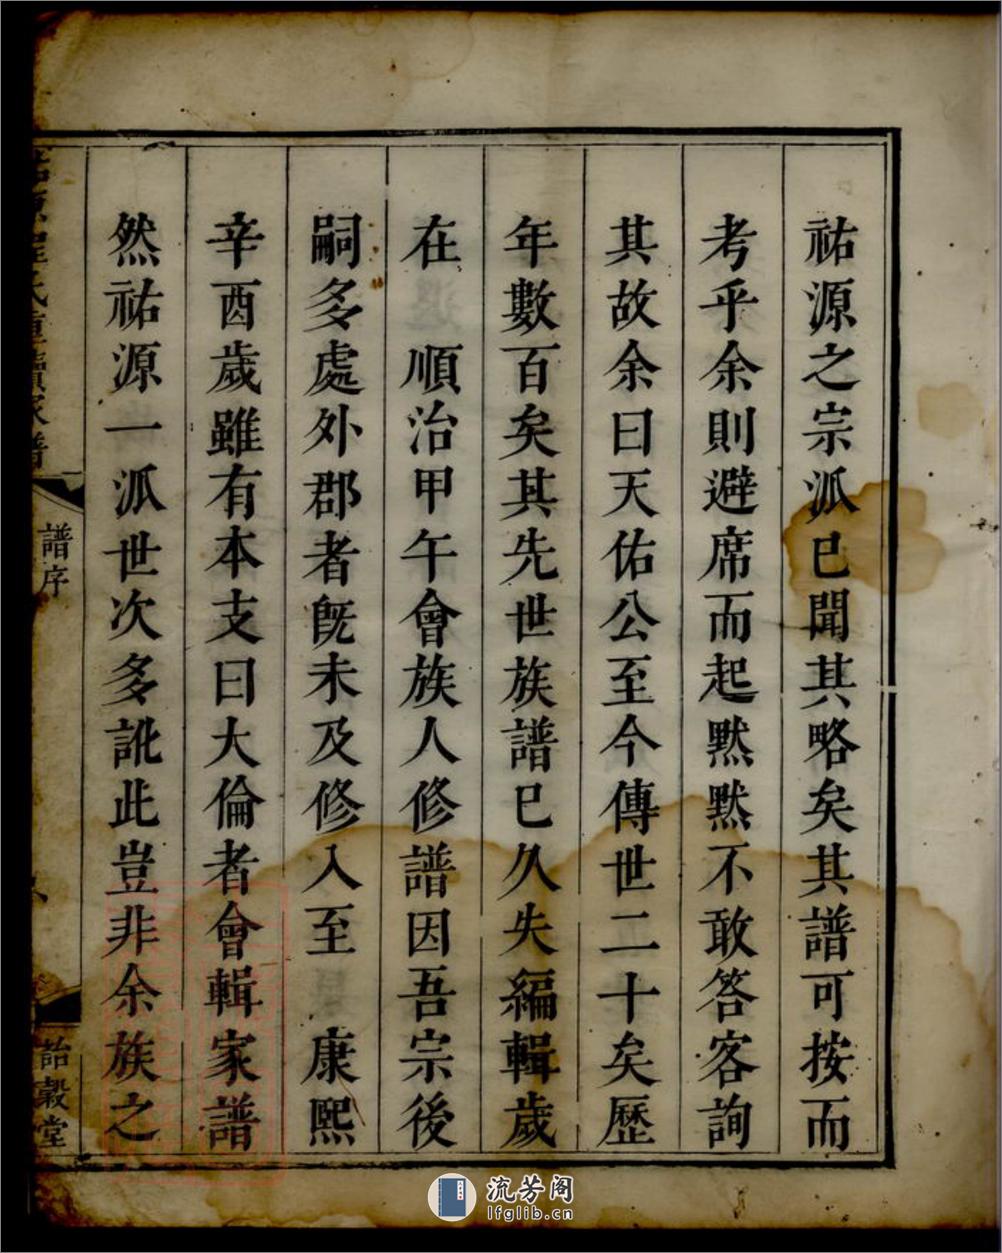 祐源之宗派已聞其略矣其譜可按而
考乎余則避席而起默默不敢答客詢
其故余曰天佑公至今傳世二十矣歷
年數百矣其先世族譜已久失編輯歲
在 順治甲午會族人修譜因吾宗後
嗣多處外郡者旣未及修入至 康熙
辛酉歲雖有本支曰大倫者會輯家譜
然祐源一派世次多訛此豈非余族之
譜序
詒穀堂
流芳阁
lfglib.cn